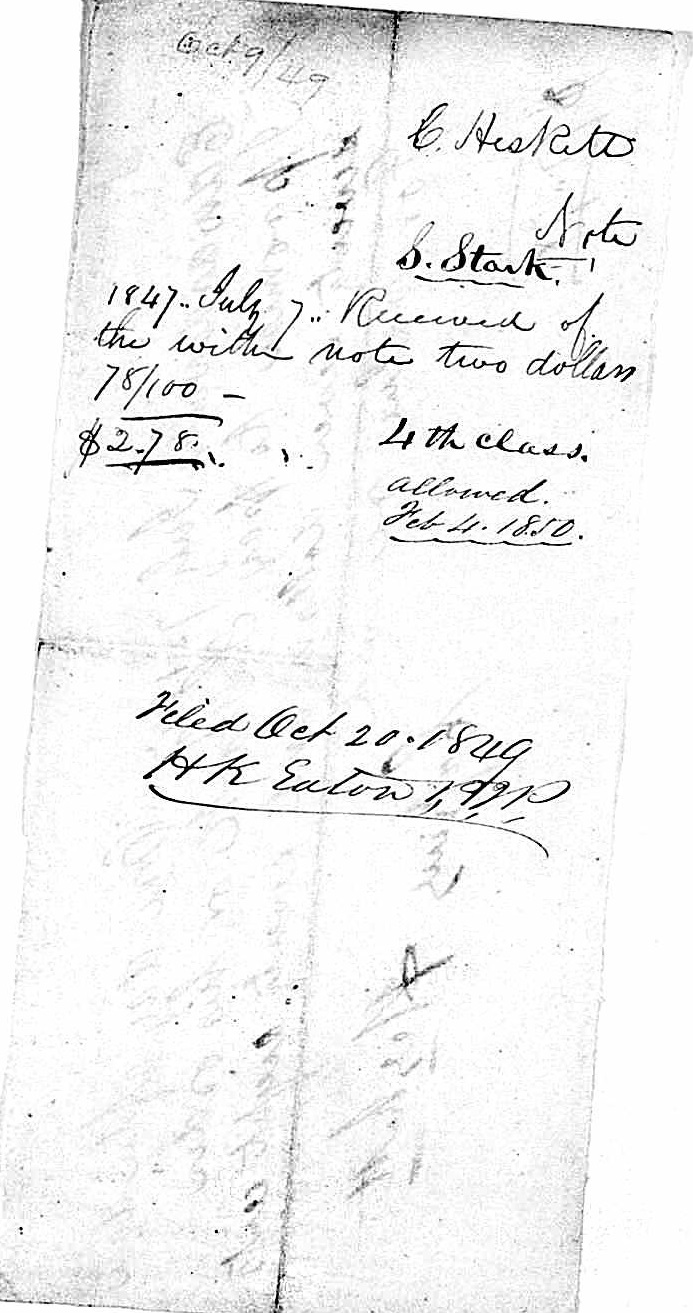 Oct 9/49
C. Heskett
Note
S. Stark.
1847.. July 7.. Received of
the within note two dollars
78/100 –
$2.78.
4th class.
allowed.
Feb 4. 1850.
Filed Oct 20. 1849
H K Eaton P,J,P,